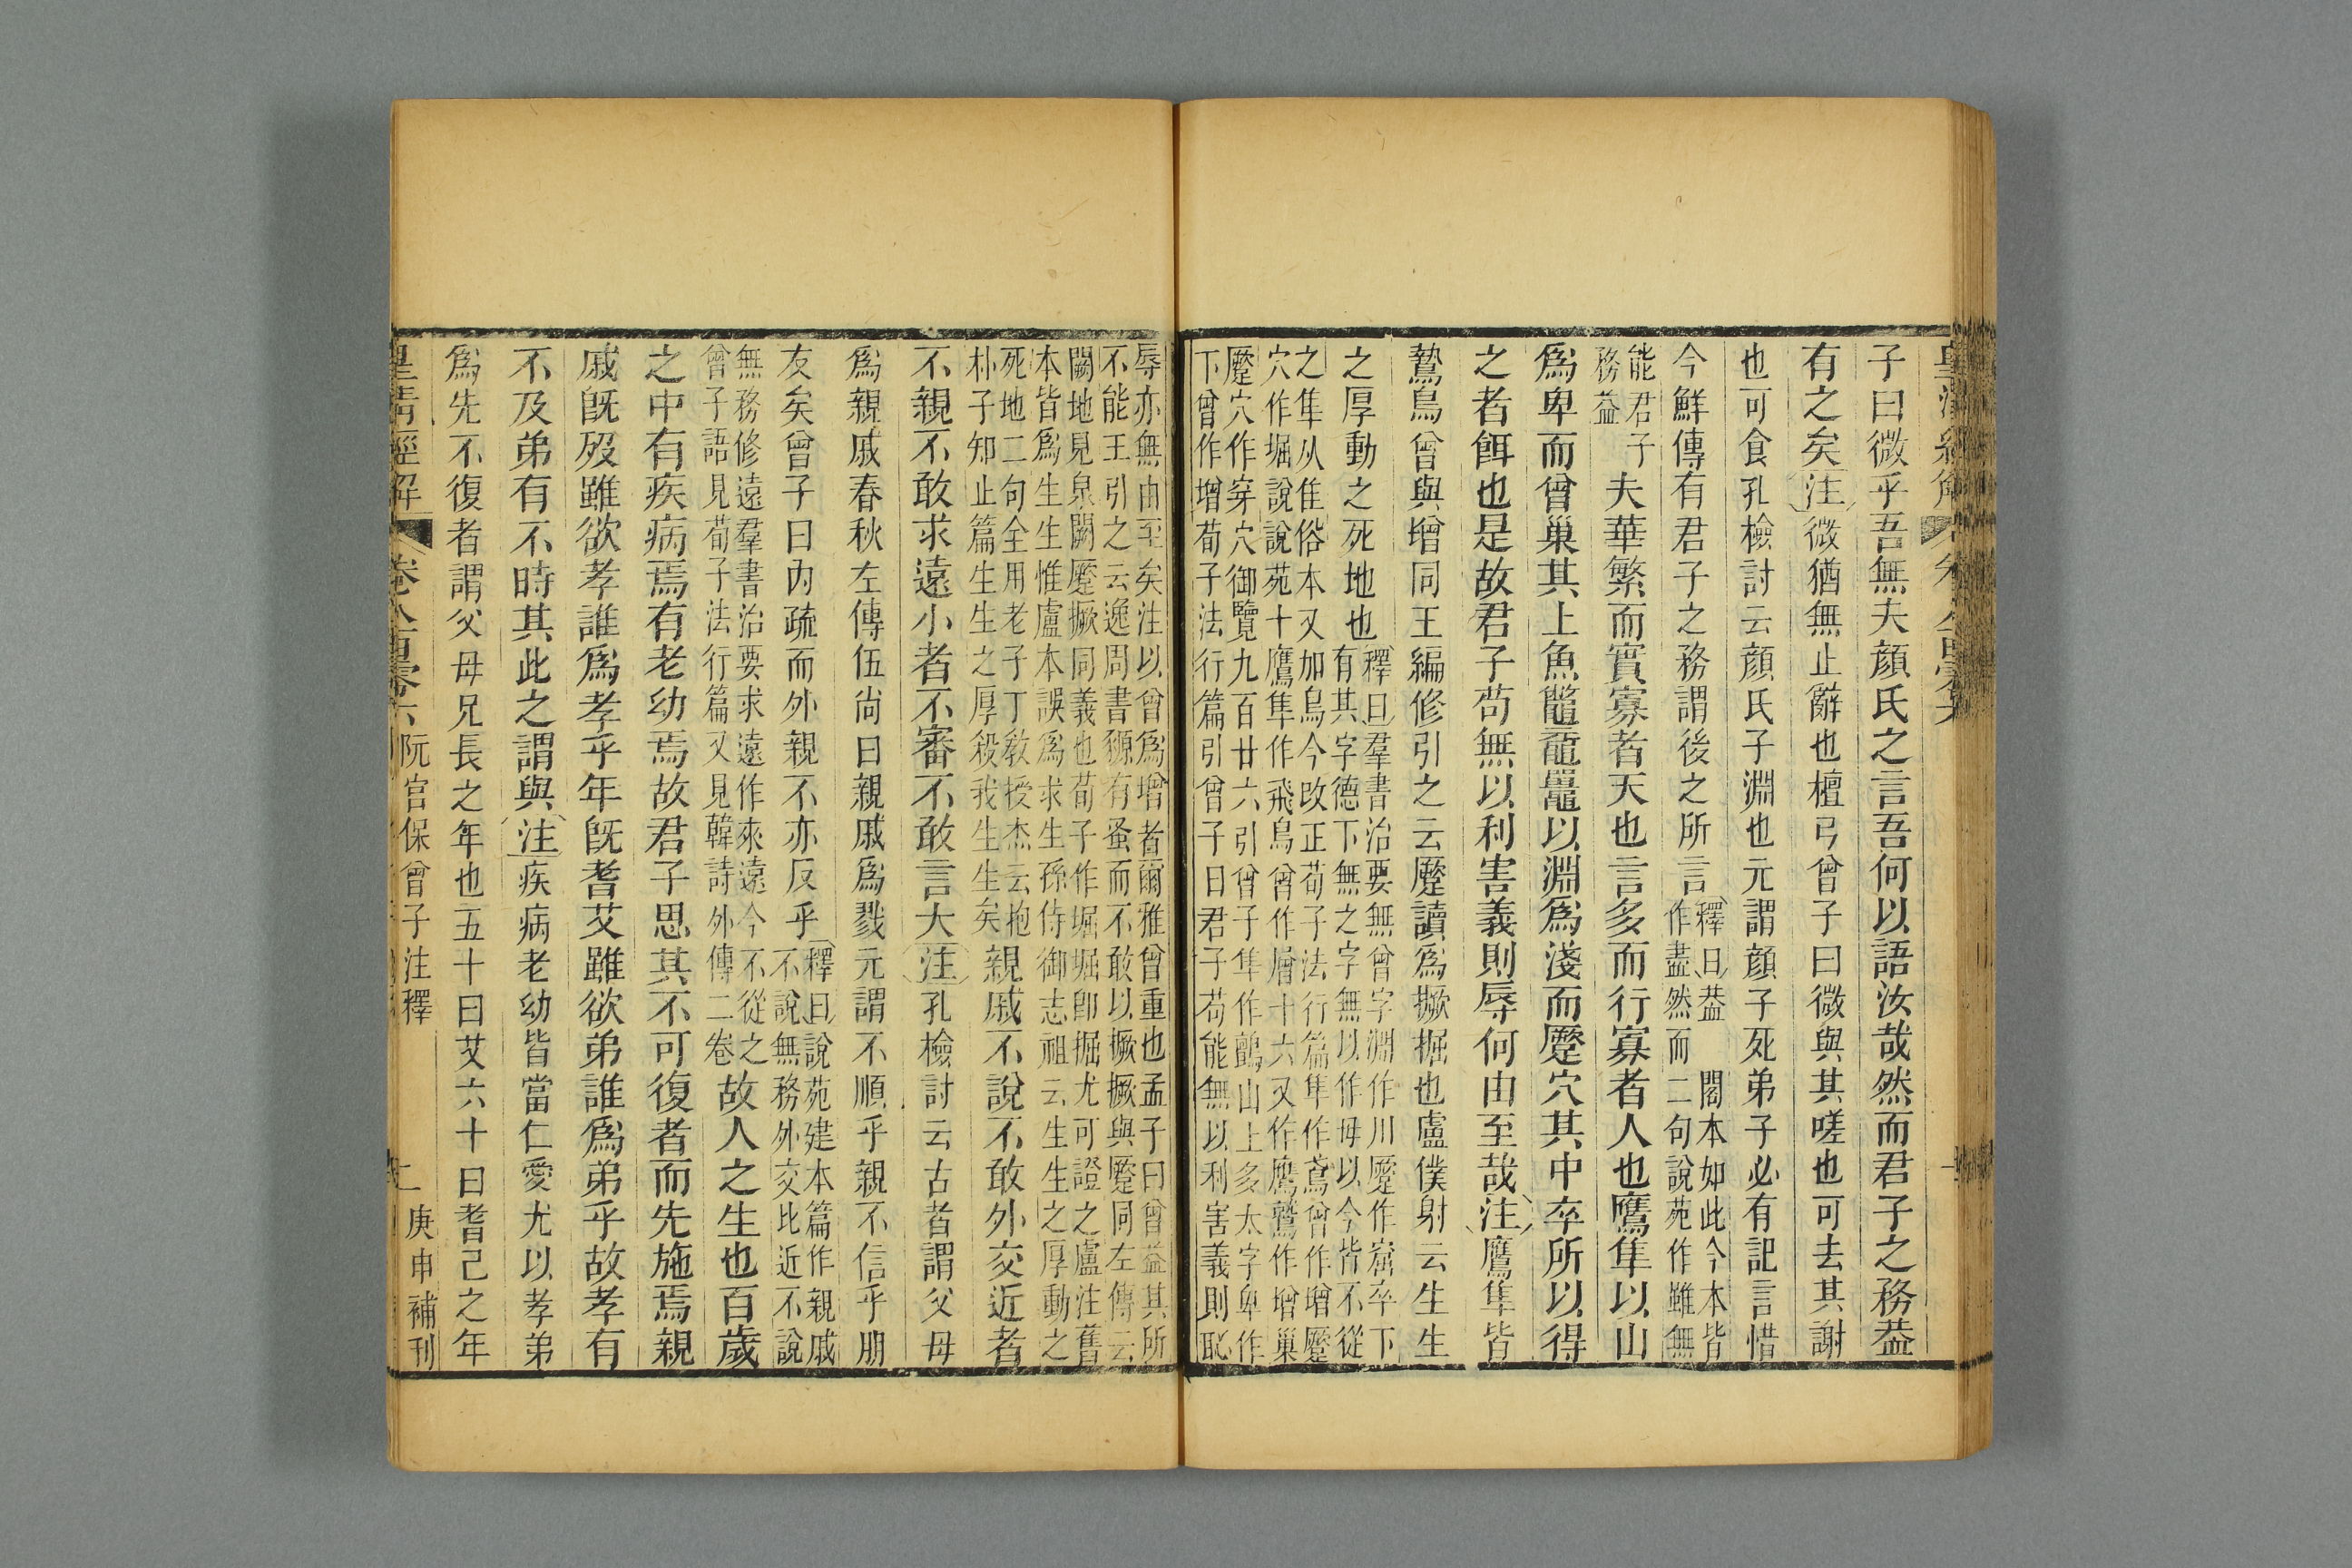 子曰微乎吾無夫顏氏之言吾何以語汝哉然而君子之務葢
有之矣注微猶無止辭也檀弓曾子曰微與其嗟也可去其謝
也可食孔檢討云顏氏子淵也元謂顏子死弟子必有記言惜
今鮮傳有君子之務謂後之所言釋曰葢 閣本如此今本皆
作盡然而二句說苑作雖無
能君子
務葢
夫華繁而實寡者天也言多而行寡者人也鷹隼以山
爲卑而曾巢其上魚鼈黿鼉以淵爲淺而蹷穴其中卒所以得
之者餌也是故君子苟無以利害義則辱何由至哉注鷹隼皆
鷙鳥曾與增同王編修引之云蹷讀爲撅掘也盧僕射云生生
之厚動之死地也釋曰羣書治要無曾字淵作川蹷作窟卒下
有其字德下無之字無以作毋以今皆不從
之隼从隹俗本又加鳥今改正荀子法行篇隼作鳶曾作增蹷
穴作堀說說苑十鷹隼作飛鳥曾作層十六又作鷹鷲作增巢
蹷穴作穿穴御覽九百廿六引曾子隼作鷳山上多太字卑作
下曾作增荀子法行篇引曾子曰君子苟能無以利害義則恥
辱亦無由至矣注以曾爲增者爾雅曾重也孟子曰曾益其所
不能王引之云逸周書豲有蚤而不敢以撅撅與蹷同左傳云
闕地見泉闕蹷撅同義也荀子作堀堀卽掘尤可證之盧注舊
本皆爲生生惟盧本誤爲求生孫侍御志祖云生生之厚動之
死地二句全用老子丁敎授杰云抱
朴子知止篇生生之厚殺我生生矣
親戚不說不敢外交近者
不親不敢求遠小者不審不敢言大注孔檢討云古者謂父母
爲親戚春秋左傳伍尚曰親戚爲戮元謂不順乎親不信乎朋
友矣曾子曰內疏而外親不亦反乎釋曰說苑建本篇作親戚
不說無務外交比近不說
無務修遠羣書治要求遠作來遠今不從之
曾子語見荀子法行篇又見韓詩外傳二卷
故人之生也百歲
之中有疾病焉有老幼焉故君子思其不可復者而先施焉親
戚旣歿雖欲孝誰爲孝乎年旣耆艾雖欲弟誰爲弟乎故孝有
不及弟有不時其此之謂與注疾病老幼皆當仁愛尤以孝弟
爲先不復者謂父母兄長之年也五十曰艾六十曰耆己之年
皇淸經解 卷八百零六 阮宮保曾子注釋 二 庚申補刊